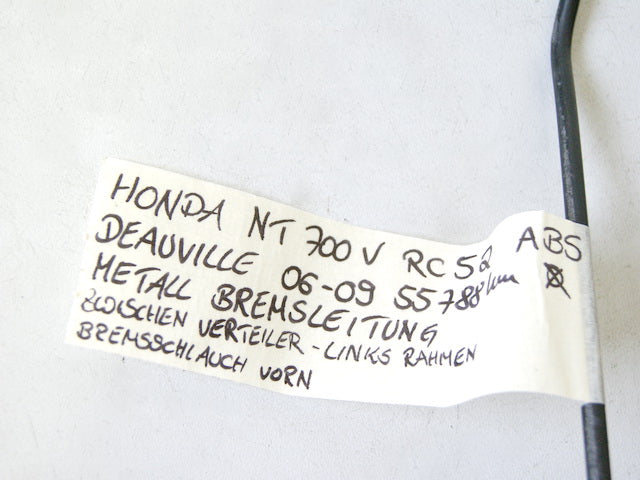 HONDA NT 700 V RC 52 ABS
DEAUVILLE 06-09 55788km
METALL BREMSLEITUNG
ZWISCHEN VERTEILER - LINKS RAHMEN
BREMSSCHLAUCH VORN